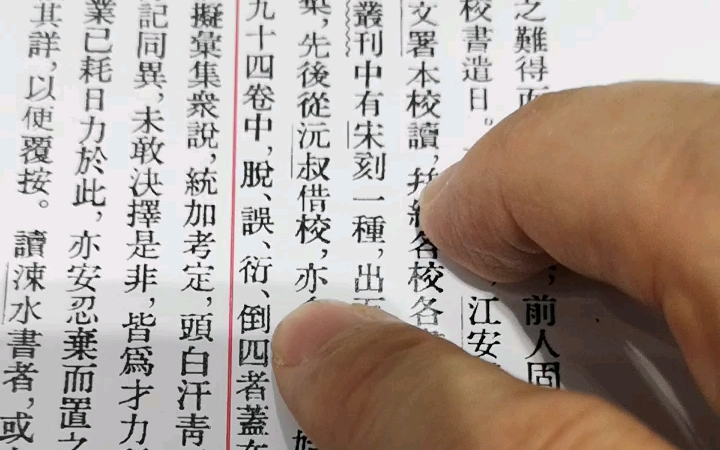 之難得而
前人固
校書遣日。
江安
文署本校讀，幷
各校各
叢刊中有宋刻一種，出
先後從沅叔借校，亦
九十四卷中，脫、誤、衍、倒四者蓋
擬彙集衆說，統加考定，頭白汗青
記同異，未敢決擇是非，皆爲才力
業已耗日力於此，亦安忍棄而置之
其詳，以便覆按。讀涑水書者，或